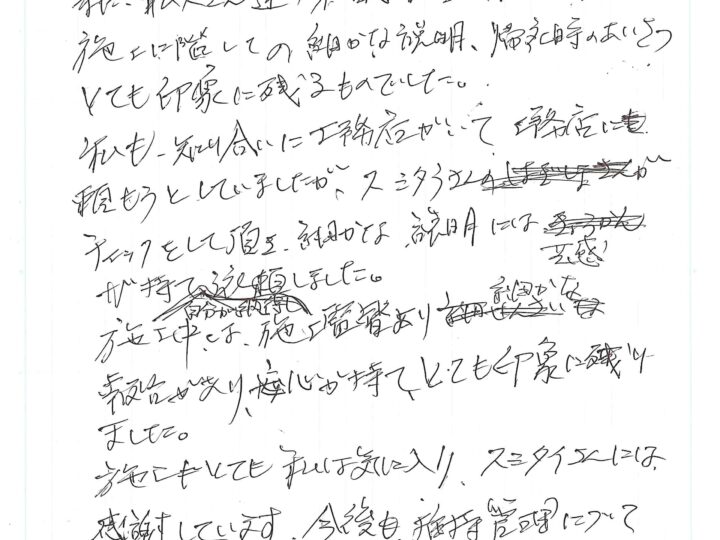 施工に際しての細かな説明、帰社時のあいさつ
とても印象に残るものでした。
私も、知り合いに工務店がいて工務店に
頼もうとしていましたが、スミタイさんが
チェックをして頂き、細かな説明には
共感
が持て依頼しました。
自分が納得し
細かな
施工中は、施工監督より
報告があり、安心が持て、とても印象に残り
ました。
施工もとても私は気に入り、スミタイさんには、
感謝しています。今後も維持管理について